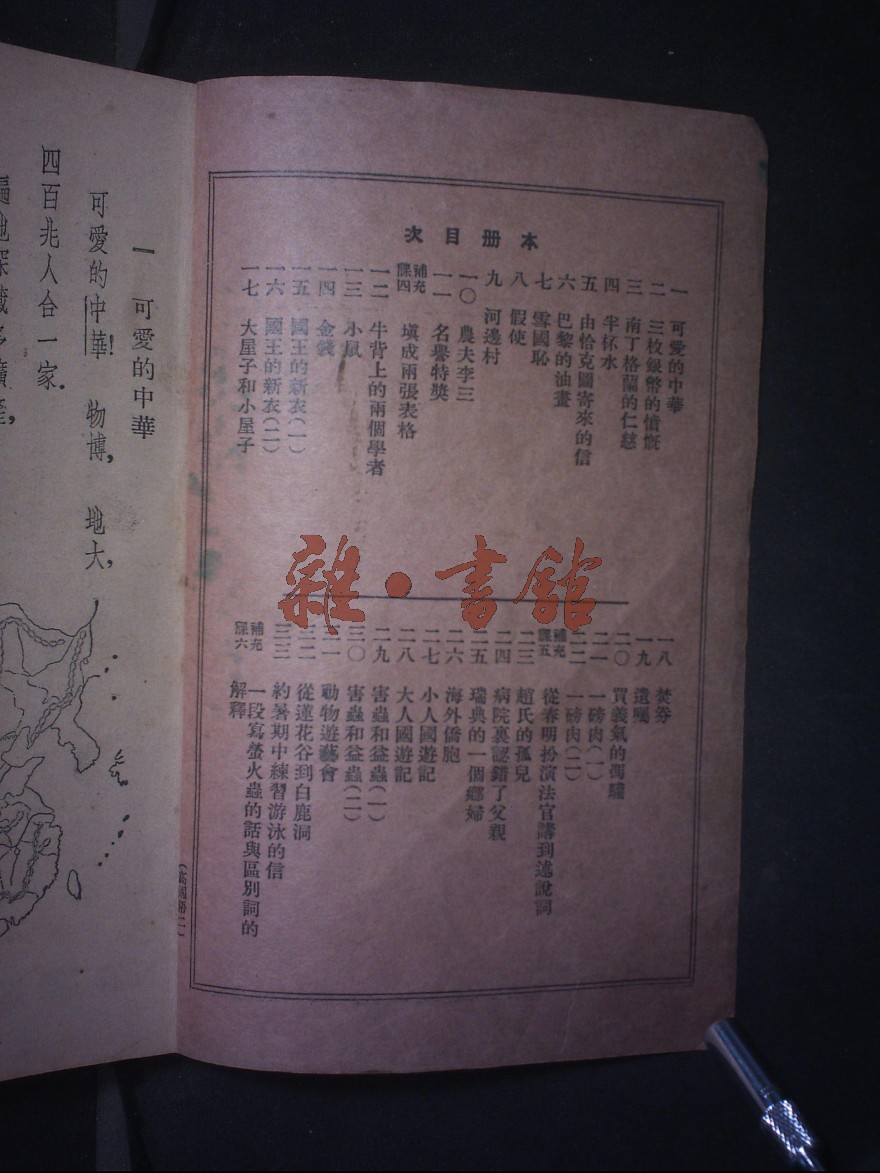 本册目次
一 可愛的中華
二 三枚銀幣的憤慨
三 南丁格蘭的仁慈
四 半杯水
五 由恰克圖寄來的信
六 巴黎的油畫
七 雪國恥
八 假使
九 河邊村
一〇 農夫李三
一一 名譽特獎
補充課四 填成兩張表格
一二 牛背上的兩個學者
一三 小鼠
一四 金錢
一五 國王的新衣(一)
一六 國王的新衣(二)
一七 大屋子和小屋子
一八 焚券
一九 遺囑
二〇 買義氣的馮驩
二一 一磅肉(一)
二二 一磅肉(二)
補充課五 從春明扮演法官講到述說詞
二三 趙氏的孤兒
二四 病院裏認錯了父親
二五 瑞典的一個鄉婦
二六 海外僑胞
二七 小人國遊記
二八 大人國遊記
二九 害蟲和益蟲(一)
三〇 害蟲和益蟲(二)
三一 動物遊藝會
三二 從蓮花谷到白鹿洞
三三 約暑期中練習游泳的信
補充課六 一段寫螢火蟲的話與區別詞的
解釋
(高國語二)
雜·書館
一 可愛的中華
可愛的中華! 物博, 地大,
四百兆人合一家.
遍地深藏多礦產,